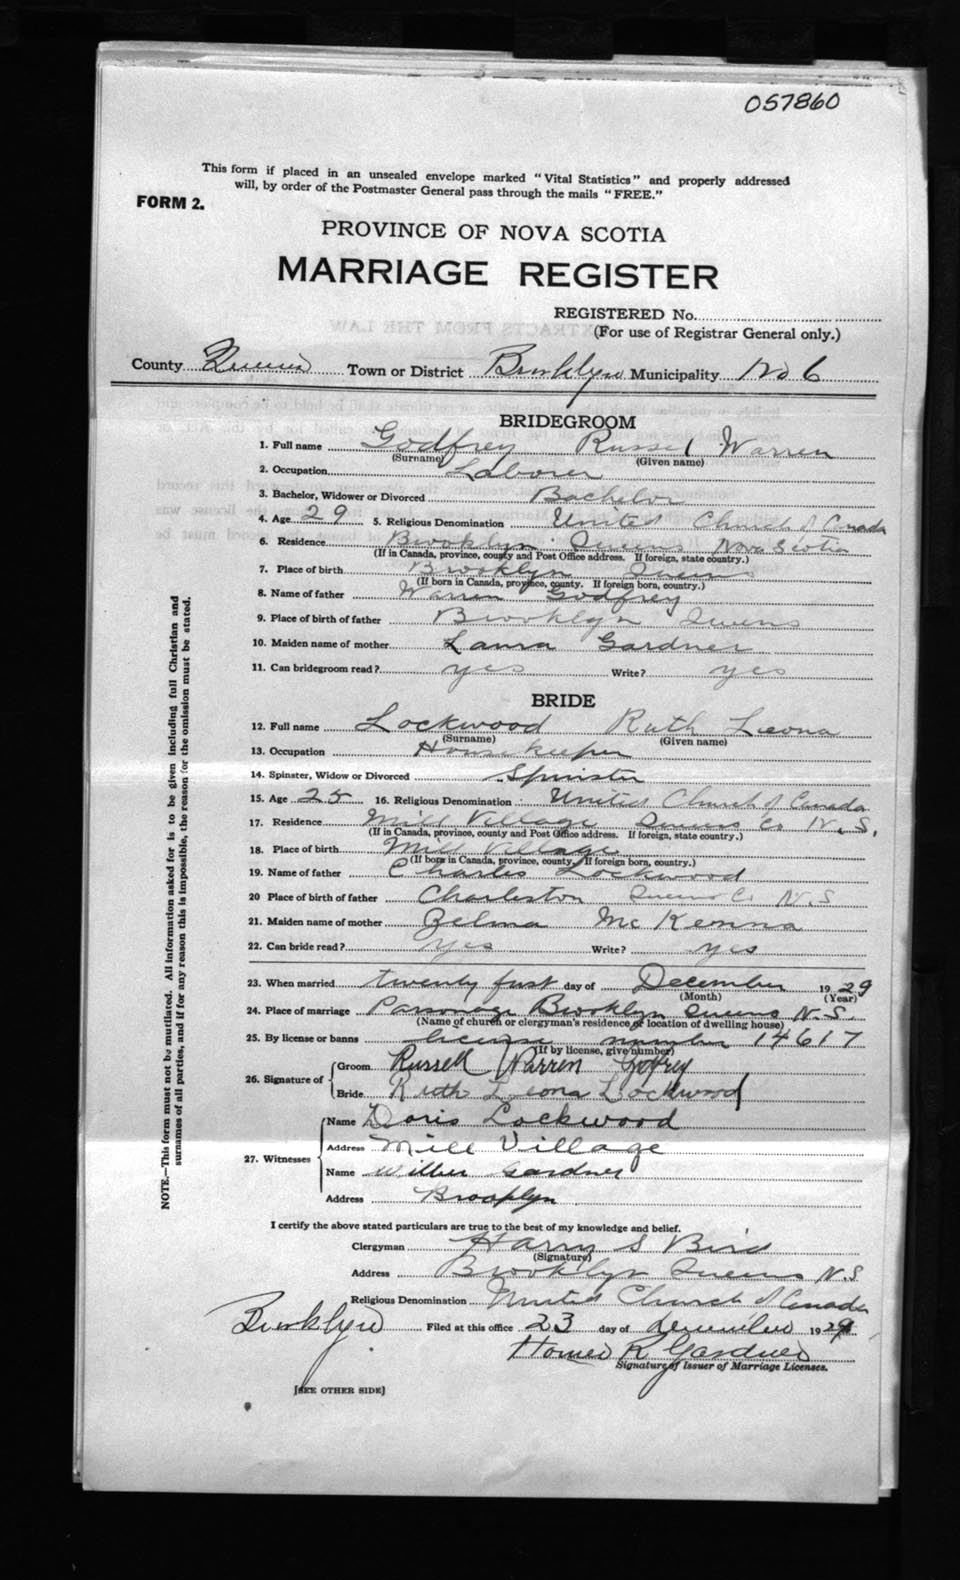 057860
This form if placed in an unsealed envelope marked "Vital Statistics" and properly addressed
will, by order of the Postmaster General pass through the mails "FREE."
FORM 2.
PROVINCE OF NOVA SCOTIA
MARRIAGE REGISTER
REGISTERED No.
(For use of Registrar General only.)
County Queens Town or District Brooklyn Municipality No 6
BRIDEGROOM
1. Full name Godfrey Russel Warren
(Surname) (Given name)
2. Occupation Laborer
3. Bachelor, Widower or Divorced Bachelor
4. Age 29 5. Religious Denomination United Church of Canada
6. Residence Brooklyn Queens Nova Scotia
(If in Canada, province, county and Post Office address. If foreign, state country.)
7. Place of birth Brooklyn Queens
(If born in Canada, province, county. If foreign born, country.)
8. Name of father Warren Godfrey
9. Place of birth of father Brooklyn Queens
10. Maiden name of mother Laura Gardner
11. Can bridegroom read? yes Write? yes
BRIDE
12. Full name Lockwood Ruth Leona
(Surname) (Given name)
13. Occupation Housekeeper
14. Spinster, Widow or Divorced Spinster
15. Age 25 16. Religious Denomination United Church of Canada
17. Residence Mill Village Queens Co N.S.
(If in Canada, province, county and Post Office address. If foreign, state country.)
18. Place of birth Mill Village
(If born in Canada, province, county. If foreign born, country.)
19. Name of father Charles Lockwood
20 Place of birth of father Charleston Queens Co N.S
21. Maiden name of mother Zelma McKenna
22. Can bride read? Yes Write? yes
23. When married twenty first day of December 1929
(Month) (Year)
24. Place of marriage Parsonage Brooklyn Queens N.S.
(Name of church or clergyman's residence or location of dwelling house)
25. By license or banns license number 14617
(If by license, give number)
26. Signature of Groom Russell Warren Godfrey
Bride Ruth Leona Lockwood
27. Witnesses Name Doris Lockwood
Address Mill Village
Name Wilber Gardner
Address Brooklyn
I certify the above stated particulars are true to the best of my knowledge and belief.
Clergyman Harry S Bird
(Signature)
Address Brooklyn Queens N.S
Religious Denomination United Church of Canada
Brooklyn Filed at this office 23 day of December 1929
Homer R Gardner
Signature of Issuer of Marriage Licenses.
[SEE OTHER SIDE]
NOTE.—This form must not be mutilated. All information asked for is to be given including full Christian and
surnames of all parties, and if for any reason this is impossible, the reason for the omission must be stated.